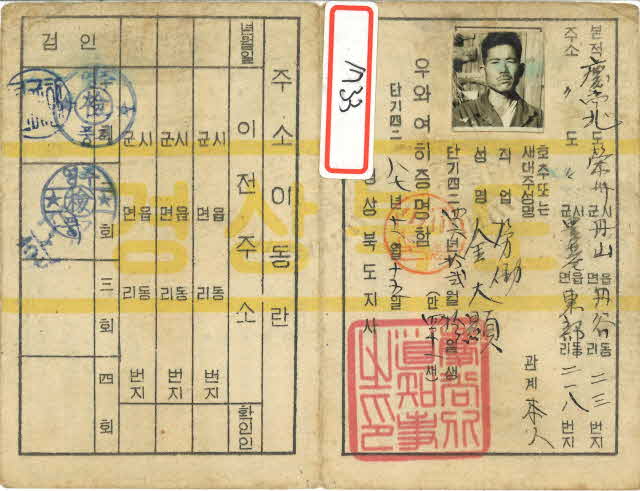 본적 慶尙北도 榮州시군 丹山읍면 丹谷동리 二三번지
주소 〃 도 〃 시군 읍면 東部동리 二一八번지
호주또는
세대주성명 관계 本人
직업 労働
성명 金大顯
단기四二 년 월 일생 (만 세)
우와여히증명함
단기四二八七년十一월十五일
경상북도지사
M33
경상북도
주소이동란
년월일 이전주소 확인인
시군 읍면 동리 번지
시군 읍면 동리 번지
시군 읍면 동리 번지
검인
회
二회
三회
四회
영주 檢 풍
영주 檢